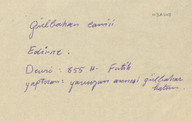 Gülbahar camisi
Edirne.
Devri : 855 H. Fatih.
yaptıran: yavuzun annesi gülbahar
hatun.